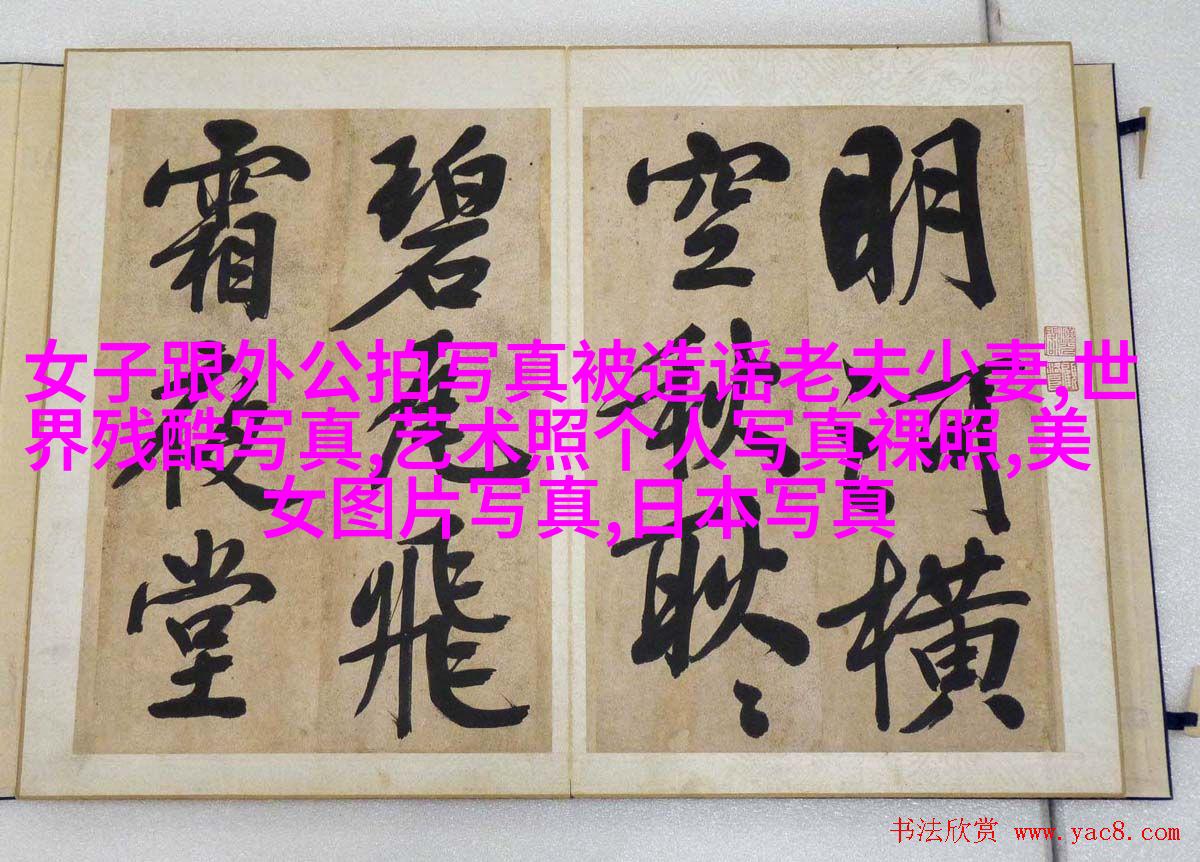 明河橫
空秋耿々
碧瓦飛
霜夜堂
女子跟外公拍写真被造谣老夫少妻,世
界残酷写真,艺术照个人写真祼照,美
女图片写真,日本写真
书法欣赏 www.yac8.com